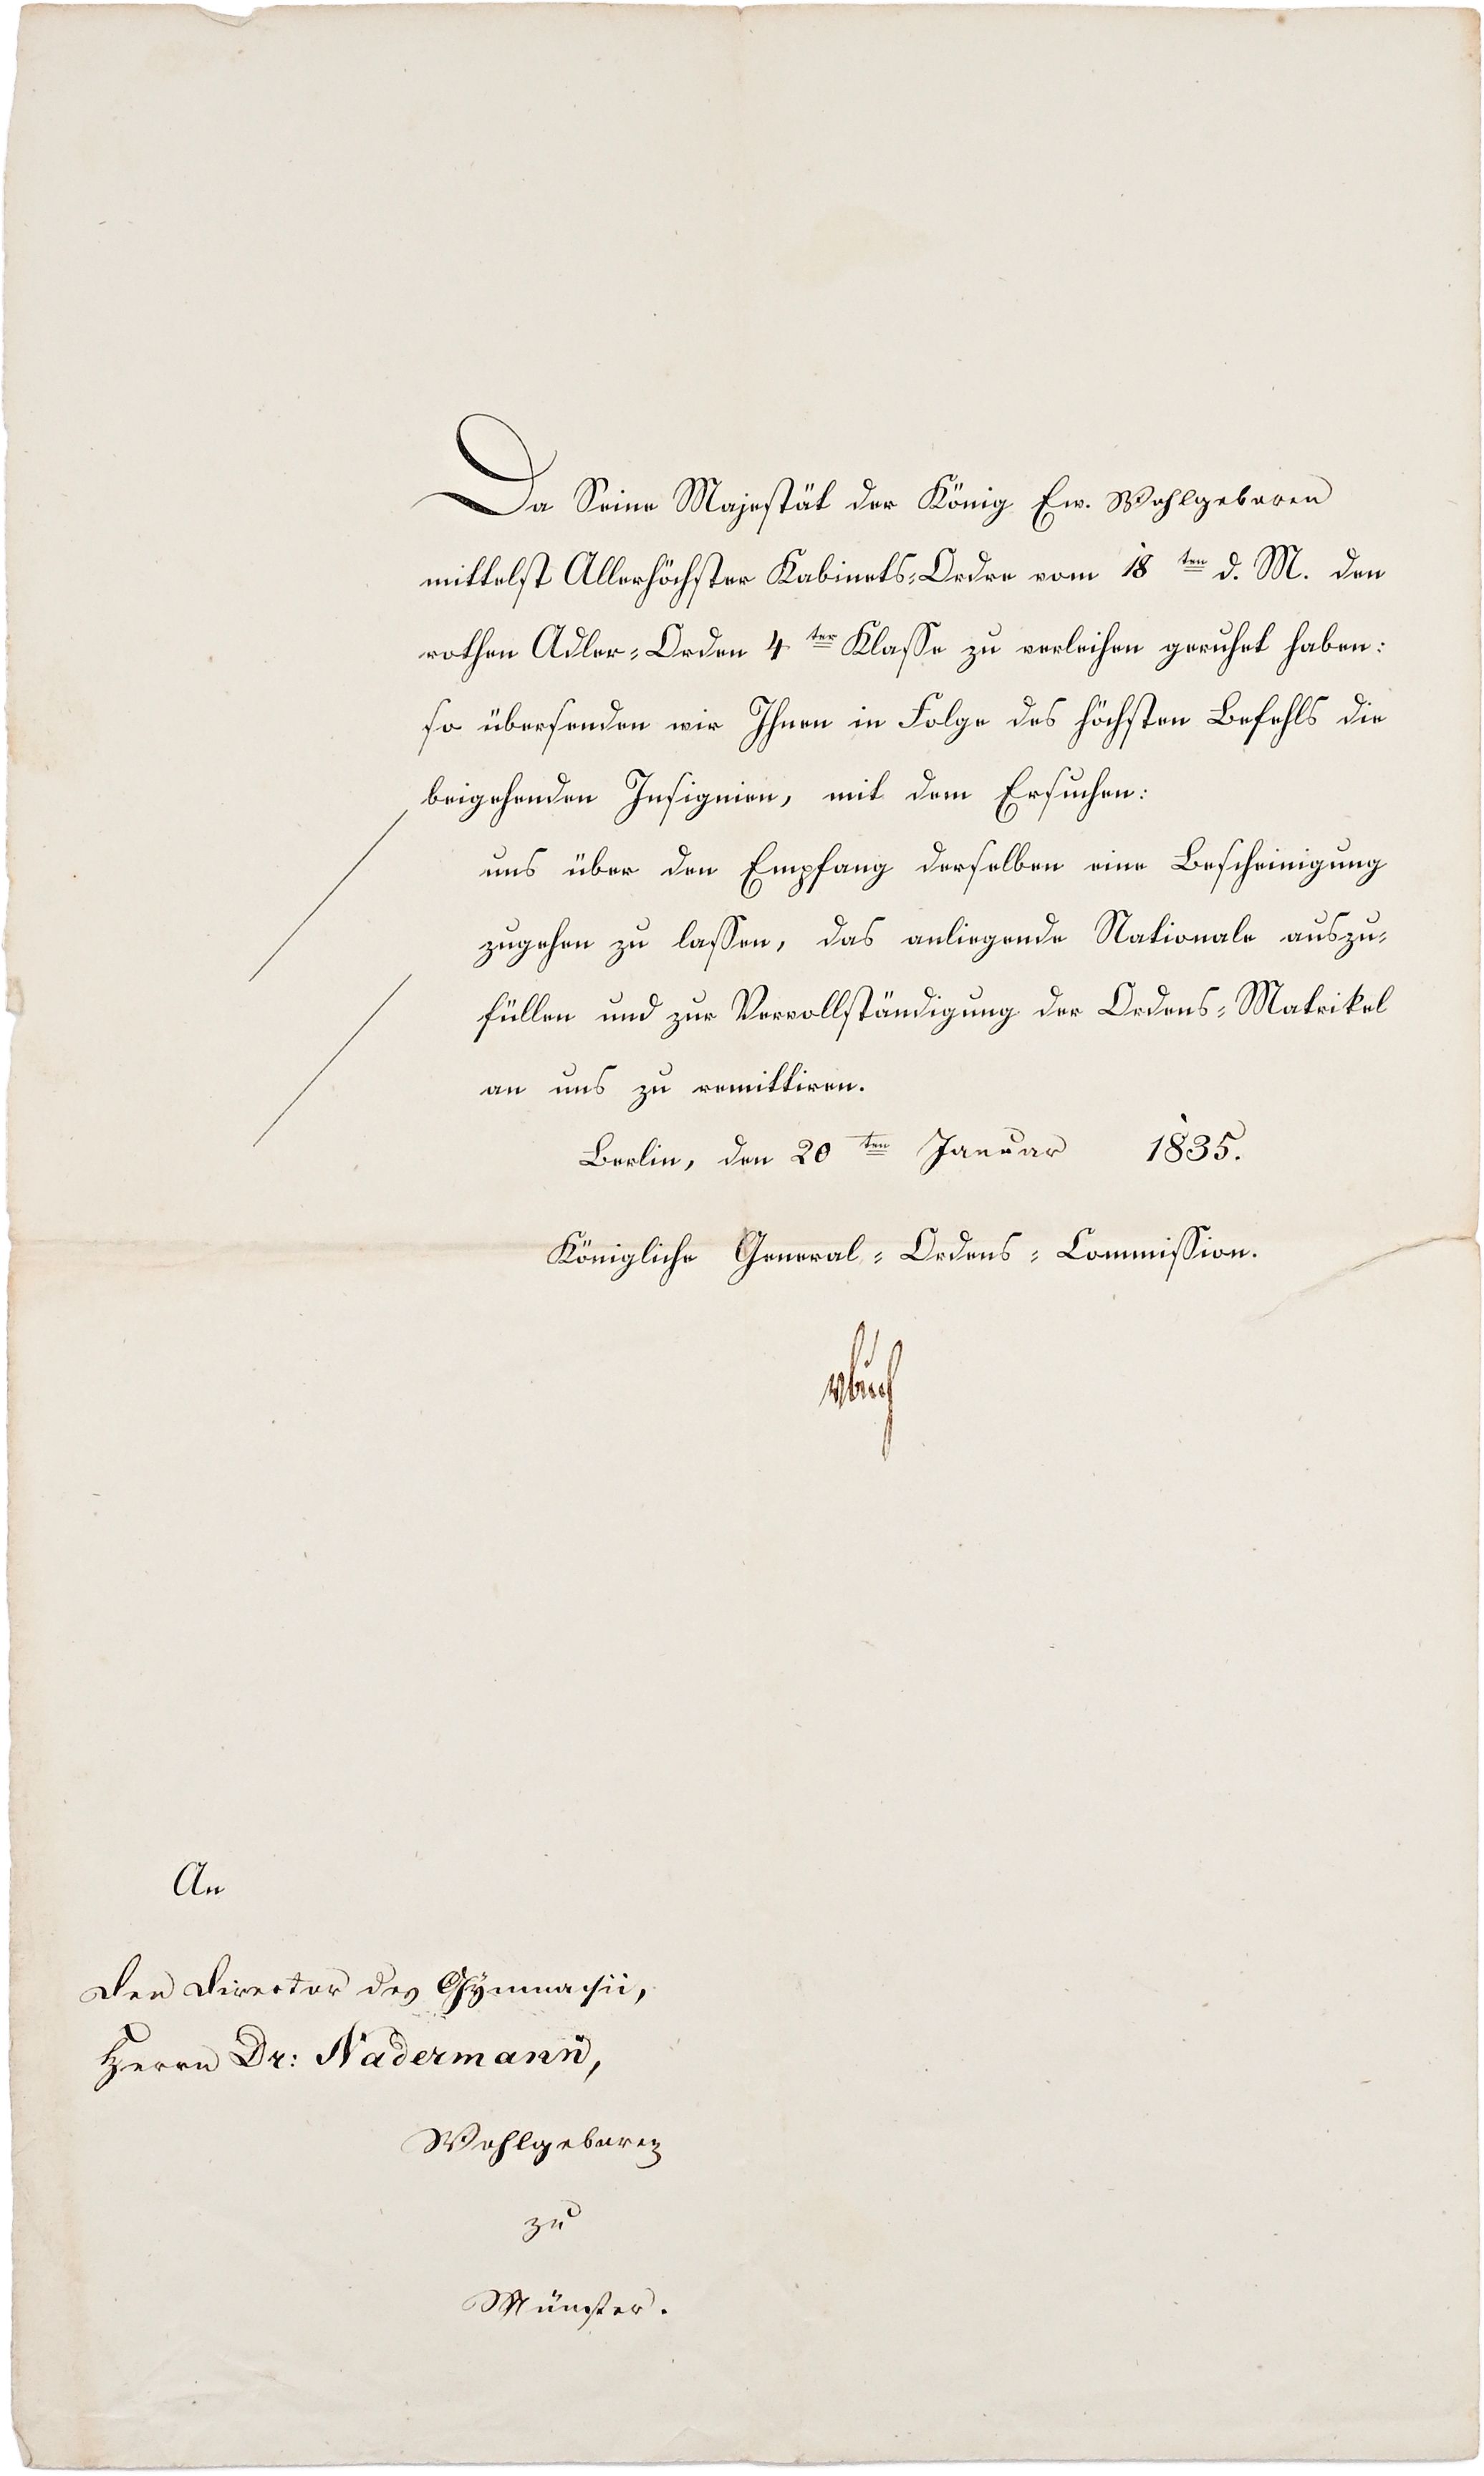 Da Seine Majestät der König Ew. Wohlgeboren
mittelst Allerhöchster Kabinets-Ordre vom 18 ten d. M. den
rothen Adler-Orden 4 ter Klasse zu verleihen geruhet haben:
so übersenden wir Ihnen in Folge des höchsten Befehls die
beigehenden Insignien, mit dem Ersuchen:
uns über den Empfang derselben eine Bescheinigung
zugehen zu lassen, das anliegende Nationale auszu-
füllen und zur Vervollständigung der Ordens-Matrikel
an uns zu remittiren.
Berlin, den 20 ten Januar 1835.
Königliche General-Ordens-Commission.
vBuch
An
den Director des Gÿmnasii,
Herrn Dr: Nadermann,
Wohlgeboren
zu
Münster.